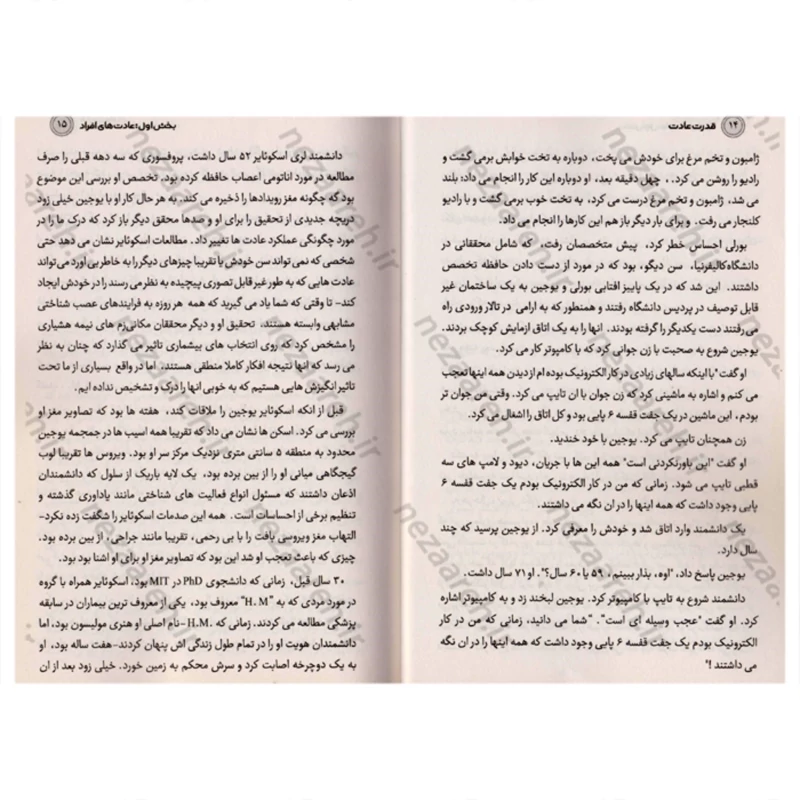 ۱۴ قدرت عادت
ژامبون و تخم مرغ برای خودش می پخت، دوباره به تخت خوابش برمی گشت و
رادیو را روشن می کرد. ، چهل دقیقه بعد، او دوباره این کار را انجام می داد: بلند
می شد، ژامبون و تخم مرغ درست می کرد، به تخت خوب برمی گشت و با رادیو
کلنجار می رفت. و برای بار دیگر باز هم این کارها را انجام می داد.
بورلی احساس خطر کرد، پیش متخصصان رفت، که شامل محققانی در
دانشگاه کالیفرنیا، سن دیگو، بود که در مورد از دست دادن حافظه تخصص
داشتند. این شد که در یک پاییز افتابی بورلی و یوجین به یک ساختمان غیر
قابل توصیف در پردیس دانشگاه رفتند و همنطور که به ارامی در تالار ورودی راه
می رفتند دست یکدیگر را گرفته بودند. انها را به یک اتاق ازمایش کوچک بردند.
یوجین شروع به صحبت با زن جوانی کرد که با کامپیوتر کار می کرد.
او گفت "با اینکه سالهای زیادی در کار الکترونیک بوده ام از دیدن همه اینها تعجب
می کنم و اشاره به ماشینی کرد که زن جوان با ان تایپ می کرد. وقتی من جوان تر
بودم، این ماشین در یک جفت قفسه ۶ پایی بود و کل اتاق را اشغال می کرد.
زن همچنان تایپ می کرد. یوجین با خود خندید.
او گفت "این باورنکردنی است" همه این ها با جریان، دیود و لامپ های سه
قطبی تایپ می شود. زمانی که من در کار الکترونیک بودم یک جفت قفسه ۶
پایی وجود داشت که همه اینها را در ان نگه می داشتند.
یک دانشمند وارد اتاق شد و خودش را معرفی کرد. از یوجین پرسید که چند
سال دارد.
یوجین پاسخ داد، "اوه، بذار ببینم، ۵۹ یا ۶۰ سال؟". او ۷۱ سال داشت.
دانشمند شروع به تایپ با کامپیوتر کرد. یوجین لبخند زد و به کامپیوتر اشاره
کرد. او گفت "عجب وسیله ای است". "شما می دانید، زمانی که من در کار
الکترونیک بودم یک جفت قفسه ۶ پایی وجود داشت که همه اینها را در ان نگه
می داشتند !"
بخش اول: عادت های افراد ۱۵
دانشمند لری اسکوئایر ۵۲ سال داشت، پروفسوری که سه دهه قبلی را صرف
مطالعه در مورد اناتومی اعصاب حافظه کرده بود. تخصص او بررسی این موضوع
بود که چگونه مغز رویدادها را ذخیره می کند. به هر حال کار او با یوجین خیلی زود
دریچه جدیدی از تحقیق را برای او و صدها محقق دیگر باز کرد که درک ما را در
مورد چگونگی عملکرد عادت ها تغییر داد. مطالعات اسکوئایر نشان می دهد حتی
شخصی که نمی تواند سن خودش یا تقریبا چیزهای دیگر را به خاطر بی اورد می تواند
عادت هایی که به طور غیر قابل تصوری پیچیده به نظر می رسند را در خودش ایجاد
کند- تا وقتی که شما یاد می گیرید که همه هر روزه به فرایندهای عصب شناختی
مشابهی وابسته هستند. تحقیق او و دیگر محققان مکانیزم های نیمه هشیاری
را مشخص کرد که روی انتخاب های بیشماری تاثیر می گذارد که چنان به نظر
می رسد که انها نتیجه افکار کاملا منطقی هستند، اما در واقع بسیاری از ما تحت
تاثیر انگیزش هایی هستیم که به خوبی انها را درک و تشخیص نداده ایم.
قبل از انکه اسکوئایر یوجین را ملاقات کند، هفته ها بود که تصاویر مغز او
بررسی می کرد. اسکن ها نشان می داد که تقریبا همه اسیب ها در جمجمه یوجین
محدود به منطقه ۵ سانتی متری نزدیک مرکز سر او بود. ویروس ها تقریبا لوب
گیجگاهی میانی او را از بین برده بود، یک لایه باریک از سلول که دانشمندان
اذعان داشتند که مسئول انواع فعالیت های شناختی مانند یاداوری گذشته و
تنظیم برخی از احساسات است. همه این صدمات اسکوئایر را شگفت زده نکرد-
التهاب مغز ویروسی بافت را با بی رحمی، تقریبا مانند جراحی، از بین برده بود.
چیزی که باعث تعجب او شد این بود که تصاویر مغز او برای او اشنا بود بود.
۳۰ سال قبل، زمانی که دانشجوی PhD در MIT بود، اسکوئایر همراه با گروه
در مورد مردی که به "H. M" معروف بود، یکی از معروف ترین بیماران در سابقه
پزشکی مطالعه می کردند. زمانی که H.M. -نام اصلی او هنری مولیسون بود، اما
دانشمندان هویت او را در تمام طول زندگی اش پنهان کردند-هفت ساله بود، او
به یک دوچرخه اصابت کرد و سرش محکم به زمین خورد. خیلی زود بعد از ان
nezaareh.ir